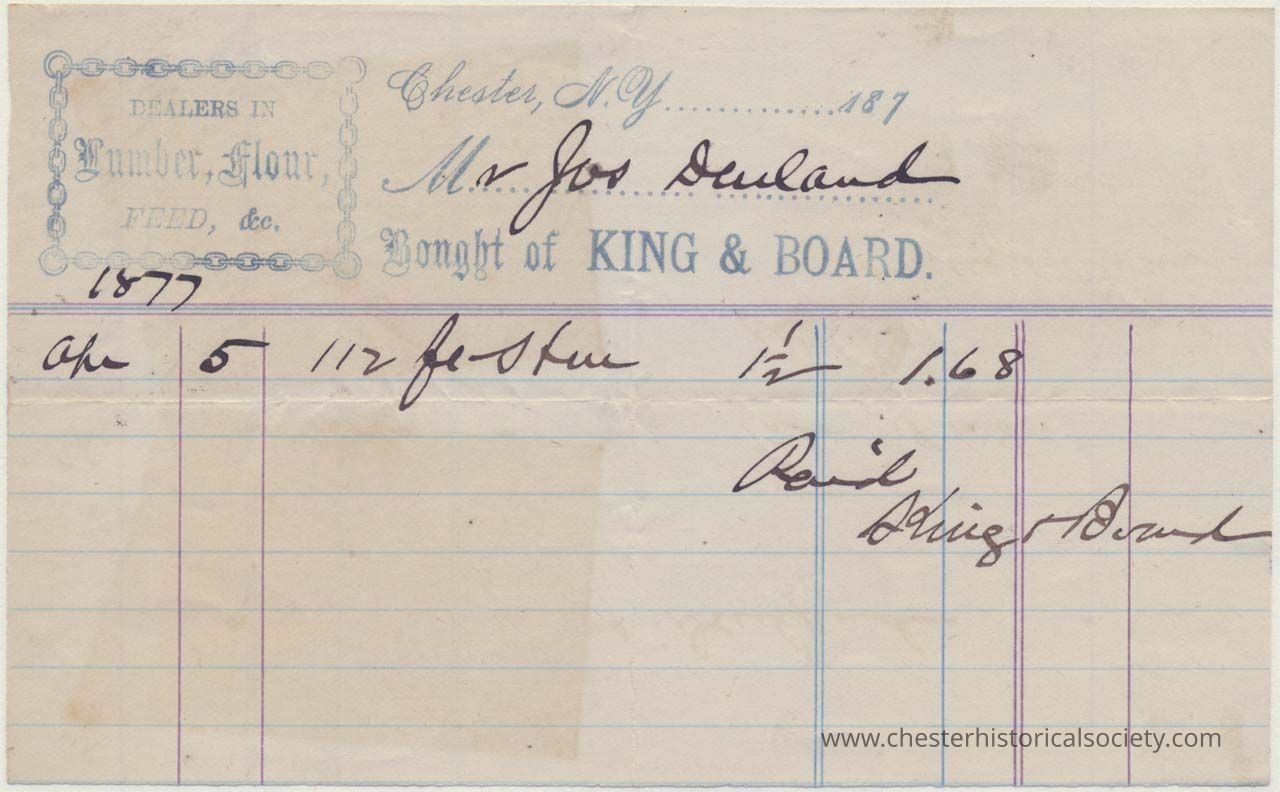 DEALERS IN
Lumber, Flour,
FEED, &c.
Chester, N.Y. 187
Mr Jos Denland
Bought of KING & BOARD.
1877
Apr 5 112 ft 1½ 1.68
Paid
King & Board
www.chesterhistoricalsociety.com